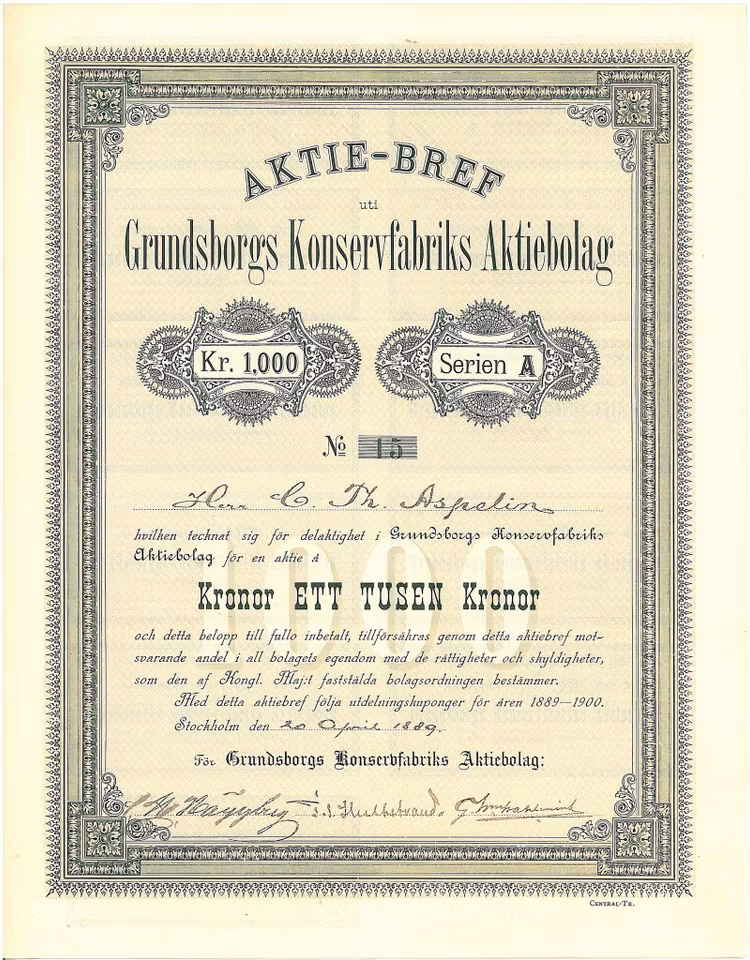 AKTIE-BREF
uti
Grundsborgs Konservfabriks Aktiebolag
Kr. 1,000 Serien A
No 15
Herr C. Th. Aspelin
hvilken technat sig för delaktighet i Grundsborgs Konservfabriks
Aktiebolag för en aktie å
1000
Kronor ETT TUSEN Kronor
och detta belopp till fullo inbetalt, tillförsäkras genom detta aktiebref mot-
svarande andel i all bolagets egendom med de rättigheter och skyldigheter,
som den af Kongl. Maj:t faststälda bolagsordningen bestämmer.
Med detta aktiebref följa utdelningskuponger för åren 1889—1900.
Stockholm den 20 April 1889.
För Grundsborgs Konservfabriks Aktiebolag:
CENTRAL-TR.